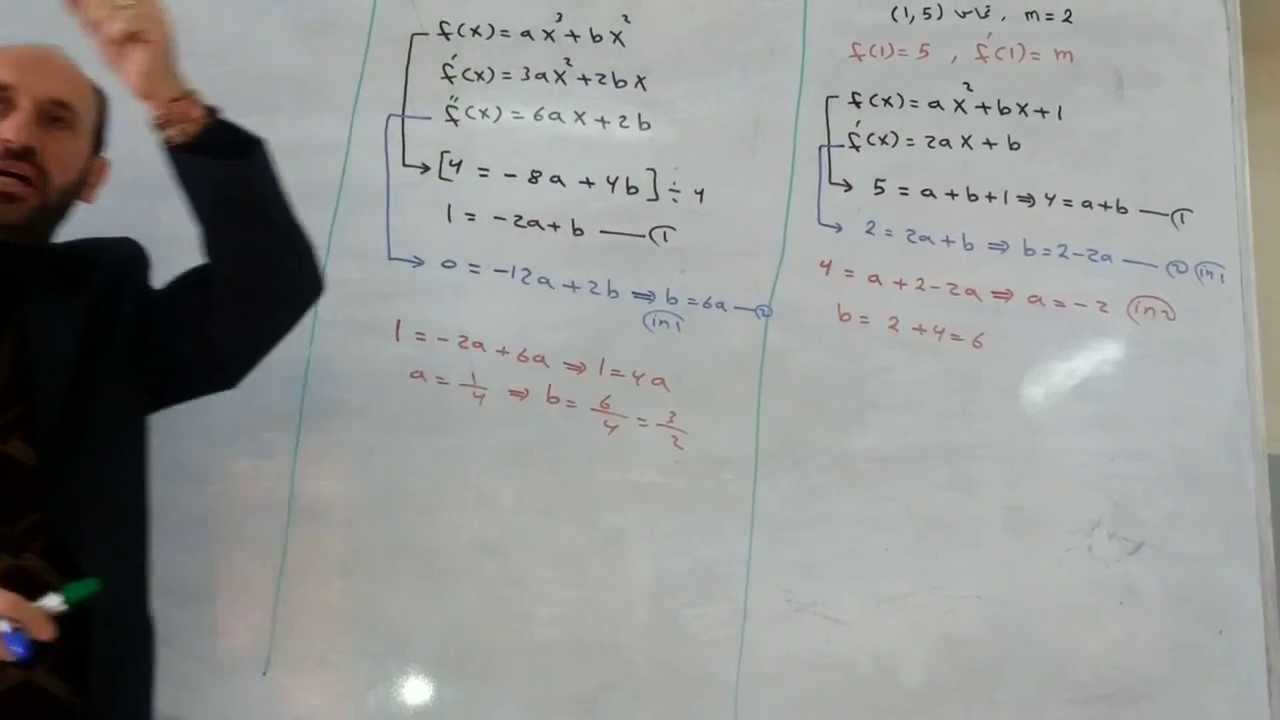 f(x)= ax³+bx²
f′(x)=3ax²+2bx
f″(x)=6ax+2b
[4 = -8a + 4b] ÷ 4
1 = -2a+b —①
0 = -12a+2b ⇒ b=6a —②
in1
1 = -2a+6a ⇒ 1=4a
a = 1/4 ⇒ b= 6/4 = 3/2
(1,5) , m=2
f(1)=5 , f′(1)= m
f(x)=ax²+bx+1
f′(x)= 2ax+b
5 = a+b+1 ⇒ 4=a+b —①
2 = 2a+b ⇒ b=2-2a —② in1
4 = a+2-2a ⇒ a=-2 in2
b= 2+4=6